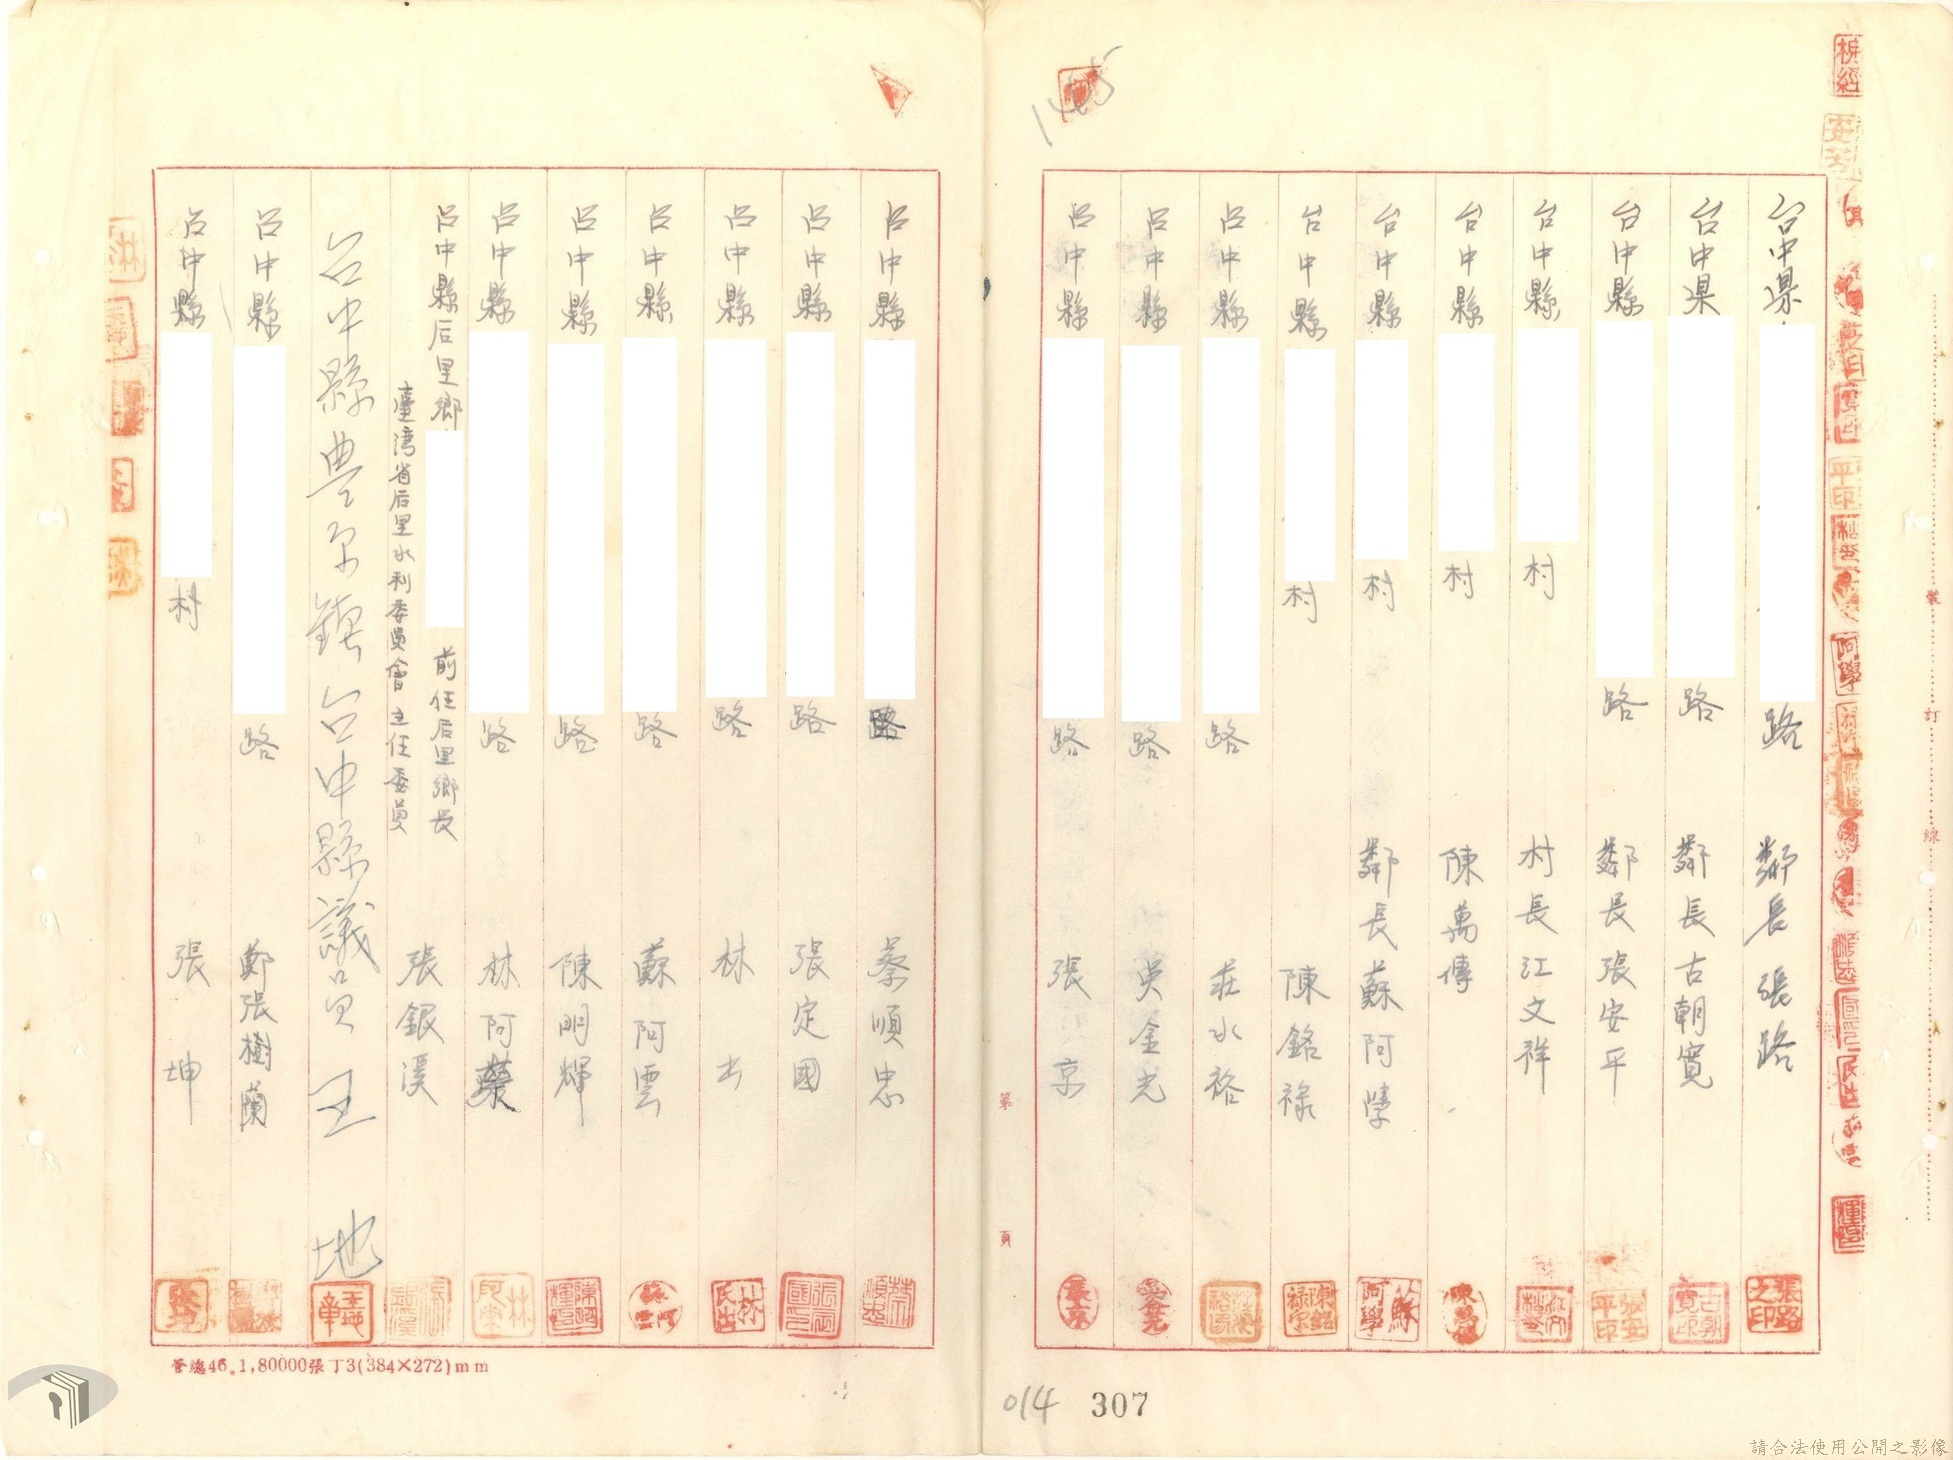 台中県 路 鄰長 張路
台中県 路 鄰長 古朝寬
台中縣 路 鄰長 張安平
台中縣 村 村長 江文祥
台中縣 村 陳萬傳
台中縣 村 鄰長 蘇阿學
台中縣 村 陳銘祿
台中縣 路 莊水裕
台中縣 路 吳金光
台中縣 路 張京
台中縣 路 蔡順忠
台中縣 路 張定國
台中縣 路 林
台中縣 路 蘇阿雲
台中縣 路 陳明輝
台中縣 路 林阿榮
台中縣后里鄉 前任后里鄉長
臺灣省后里水利委員會主任委員 張銀溪
台中縣豊原鎮 台中縣議員 王地
台中縣 路 鄭張樹蘭
台中縣 村 張坤
145
裝
訂
線
第
頁
張路之印
平印
蘇阿學
管總46.1,80000張丁3(384×272)mm
014
307
請合法使用公開之影像